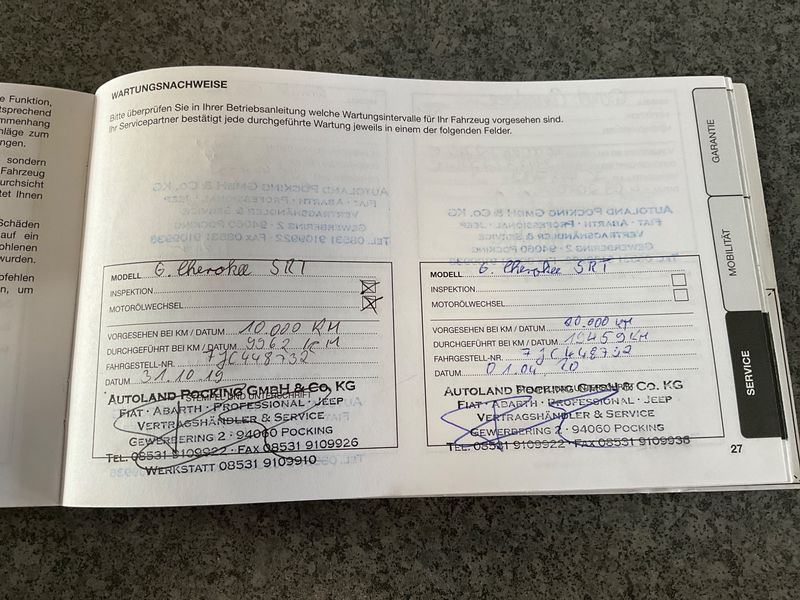 e Funktion,
tsprechend
menhang
hläge zum
ngen.
sondern
Fahrzeug
urchsicht
tet Ihnen
Schäden
auf ein
ohlenen
wurden.
pfehlen
n, um
WARTUNGSNACHWEISE
Bitte überprüfen Sie in Ihrer Betriebsanleitung welche Wartungsintervalle für Ihr Fahrzeug vorgesehen sind.
Ihr Servicepartner bestätigt jede durchgeführte Wartung jeweils in einem der folgenden Felder.
MODELL G. Cherokee SRT
INSPEKTION
MOTORÖLWECHSEL
VORGESEHEN BEI KM / DATUM 10.000 KM
DURCHGEFÜHRT BEI KM / DATUM 9962 KM
FAHRGESTELL-NR. 7JC448732
DATUM 31.10.19
STEMPEL UND UNTERSCHRIFT
AUTOLAND POCKING GMBH & CO. KG
FIAT · ABARTH · PROFESSIONAL · JEEP
VERTRAGSHÄNDLER & SERVICE
GEWERBERING 2 · 94060 POCKING
TEL. 08531 9109922 · FAX 08531 9109926
WERKSTATT 08531 9109910
MODELL G. Cherokee SRT
INSPEKTION
MOTORÖLWECHSEL
VORGESEHEN BEI KM / DATUM 20.000 KM
DURCHGEFÜHRT BEI KM / DATUM 10459 KM
FAHRGESTELL-NR. 7JC448732
DATUM 01.04.
AUTOLAND POCKING GMBH & CO. KG
FIAT · ABARTH · PROFESSIONAL · JEEP
VERTRAGSHÄNDLER & SERVICE
GEWERBERING 2 · 94060 POCKING
TEL. 08531 9109922 · FAX 08531 9109936
27
GARANTIE
MOBILITÄT
SERVICE